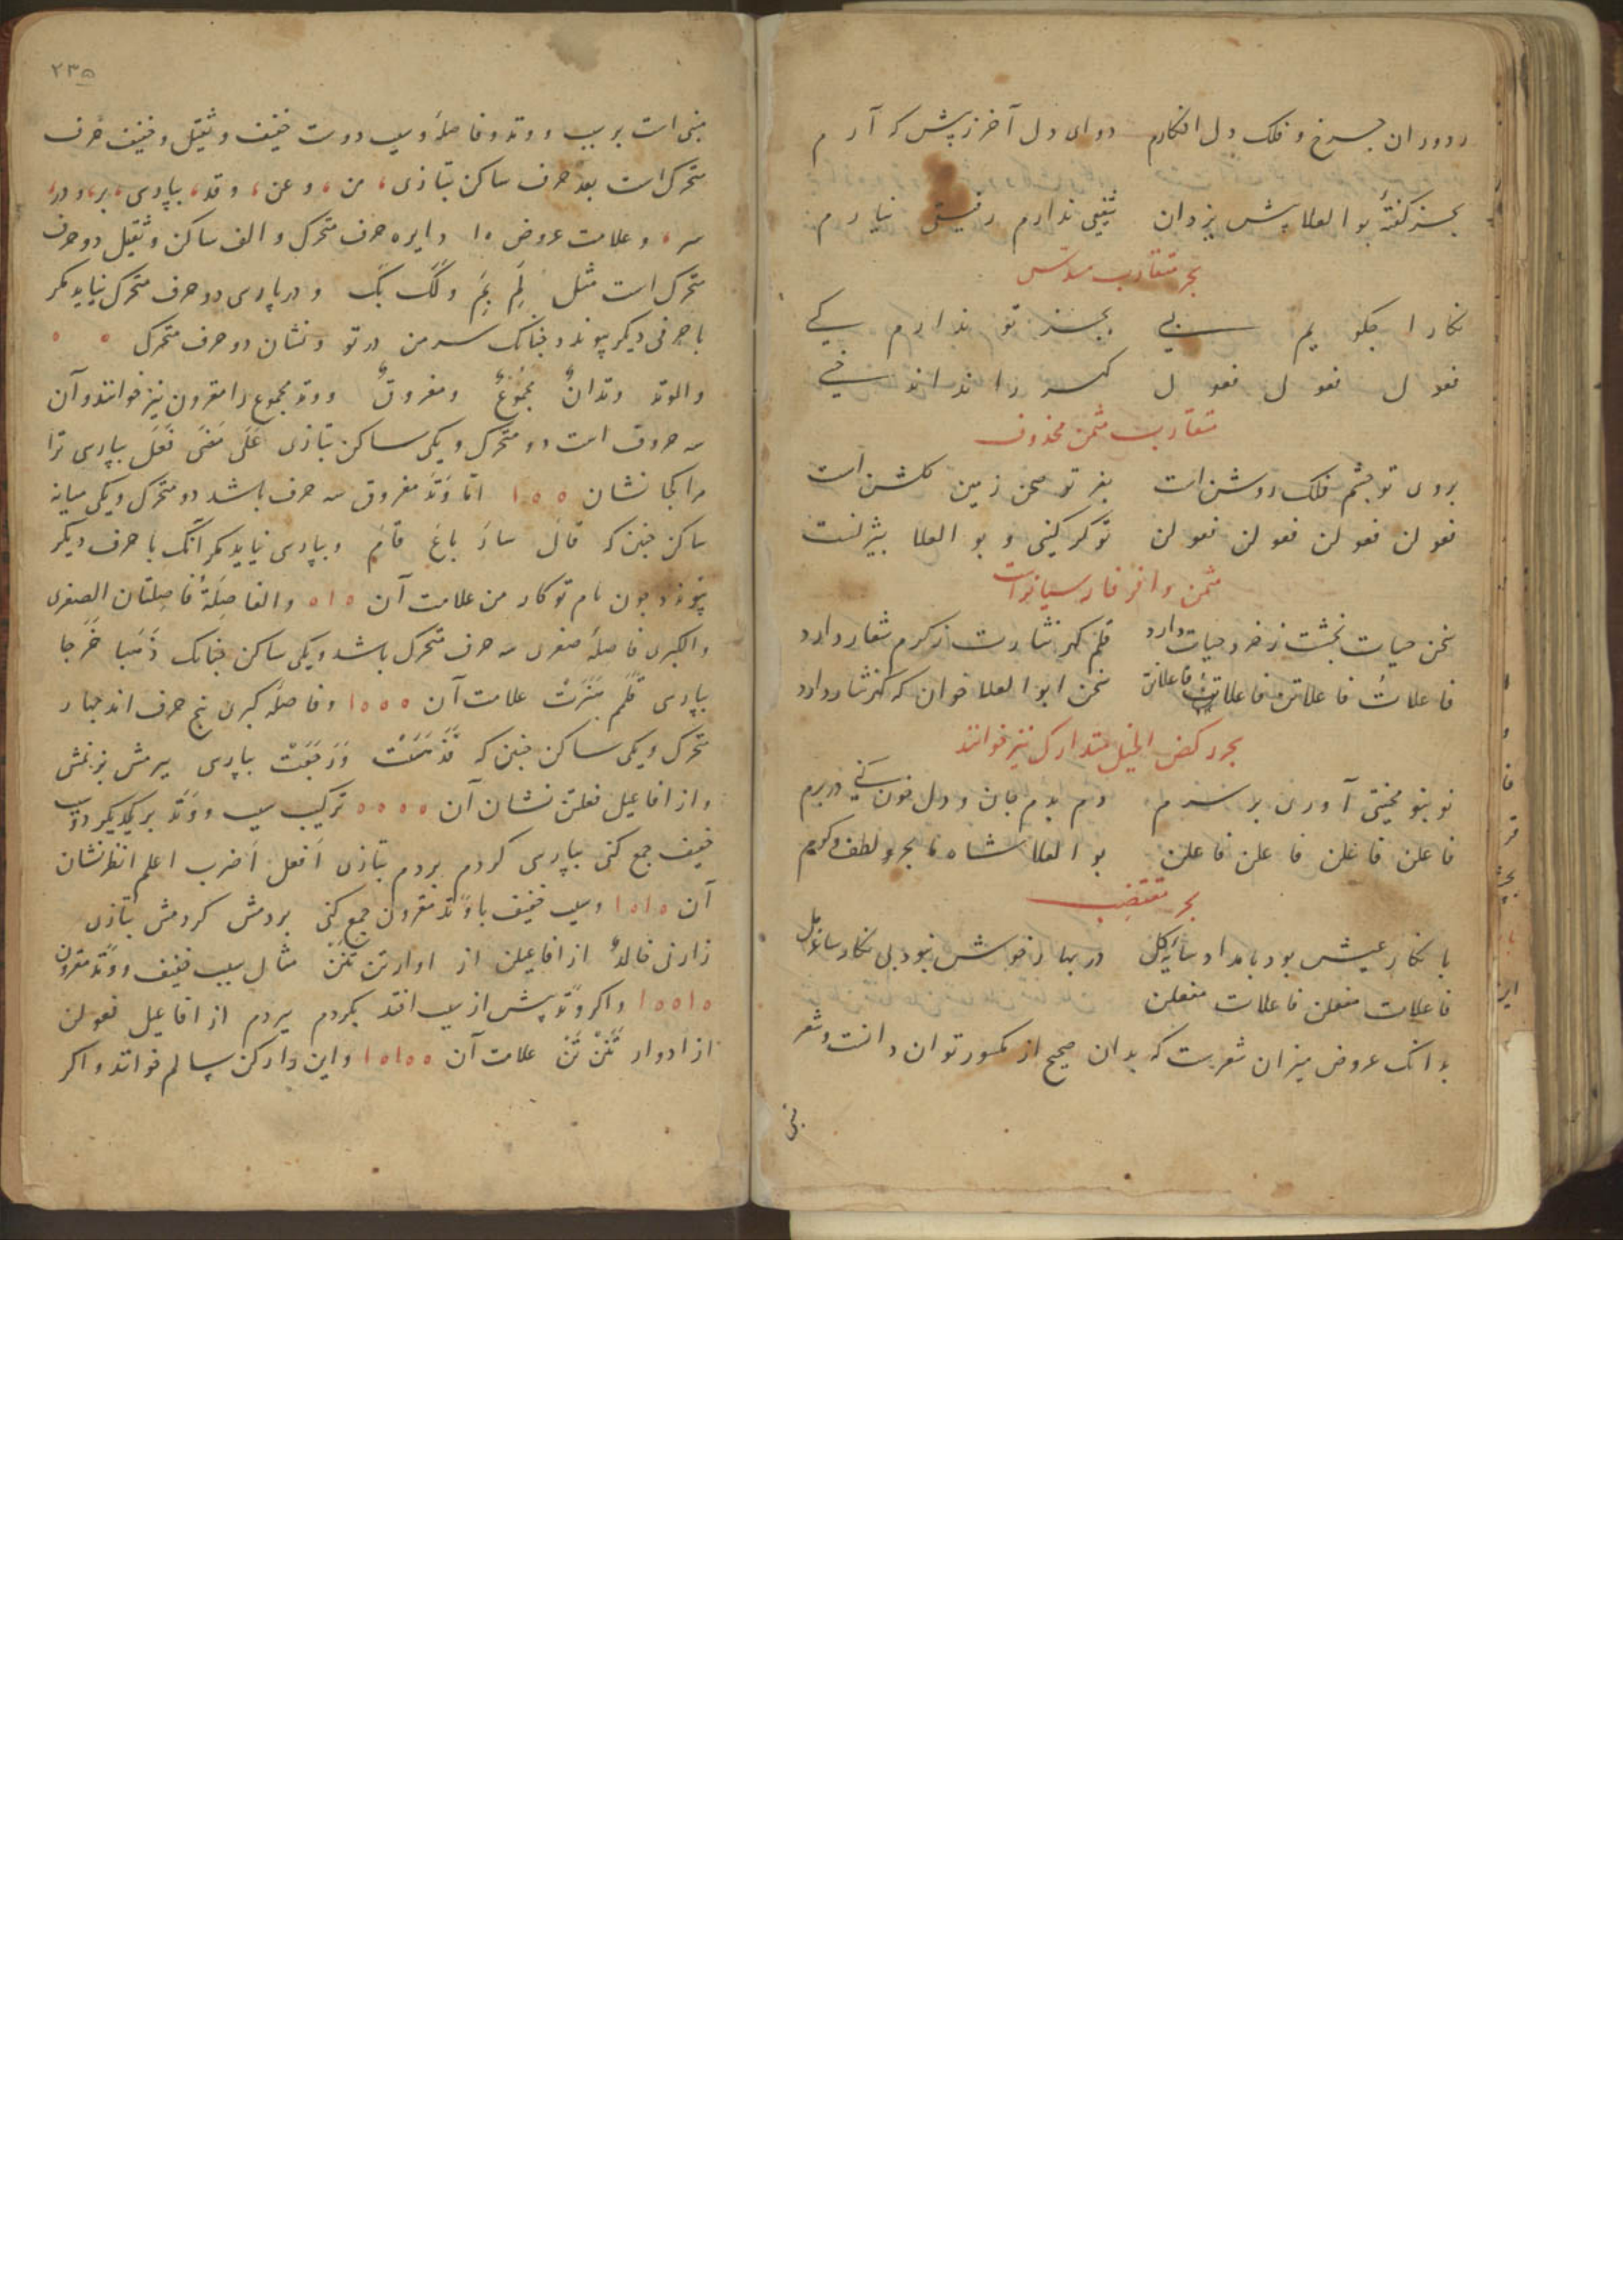 ردوران چرخ و فلک دل افکارم دوای دل آخر ز پیش که آرم
بجز کفتهٔ بو العلا پیش یزدان شفیعی ندارم رفیقی نیارم
بحر متقارب مسدس
نکارا چکویم بجز تو ندارم کسی
فعول فعول فعول را نداند
متقارب مثمن محذوف
بروی تو چشم فلک روشن است بفر تو صحن زمین کلشن است
فعولن فعولن فعولن فعولن تو کر کنی و بو العلا
مثمن وافر فارسیانراست
سخن حیات بخشت ز خرد حیات دارد قلم کهر نثارت ز کرم شعار دارد
فاعلات فاعلاتن فاعلات فاعلاتن سخن ابو العلا خوان که کهر نثار دارد
بحر رکض الخیل متدارک نیز خوانند
نو بنو محنتی آوری بر سرم دم بدم جان و دل خون کنی در برم
فاعلن فاعلن فاعلن فاعلن بو العلا شاه ما بحر و لطف و کرم
بحر مقتضب
با نکار عیش بود بامداد سایه کل در بهار خوش نبود بی نکار ساغر مل
فاعلات مفعلن فاعلات مفعلن
بدانک عروض میزان شعرست که بدان صحیح از مکسور توان دانست و شعر
مبنی
۲۳۵
مبنی است بر سبب و وتد و فاصله و سبب دوست خفیف و ثقیل و خفیف حرف
متحرک است بعد حرف ساکن بتازی من و عن و قد بپارسی بر و در
سر و علامت عروض ١٥ دایره حرف متحرک و الف ساکن و ثقیل دو حرف
متحرک است مثل لِمَ بِمَ و لَکَ بِکَ و در پارسی دو حرف متحرک نیاید مکر
با حرفی دیکر پیوندد چنانک سر من در تو و نشان دو حرف متحرک ٥ ٥
والوتد وتدانٌ مجموعٌ و مفروقٌ و وتد مجموع را مقرون نیز خوانند و آن
سه حروف است دو متحرک و یکی ساکن بتازی عَلَی مَضَی فَعَلَ بپارسی ترا
مرا کجا نشان ٥ ٥ ١ اما وتد مفروق سه حرف باشد دو متحرک و یکی میانه
ساکن چنین که قالَ سارَ باعَ قامَ و بپارسی نیاید مکر آنک با حرف دیکر
پیوندد چون نام تو کار من علامت آن ٥ ١ ٥ والفاصلة فاصلتان الصغری
والکبری فاصله صغری سه حرف متحرک باشد و یکی ساکن چنانک ذهبا خرجا
بپارسی قلم علامت آن ٥ ٥ ٥ ١ و فاصله کبری پنج حرف اند چهار
متحرک و یکی ساکن چنین که بپارسی
و از افاعیل فعلتن نشان آن ٥ ٥ ٥ ٥ ترکیب سبب و وتد بر یکدیکر دو سبب
خفیف جمع کنی بپارسی کردم بردم بتازی اَفعل اَضرب اعلم انظر نشان
آن ٥ ١ ٥ ١ و سبب خفیف با وتد مقرون جمع کنی بردمش کردمش بتازی
زارنی خالدٌ از افاعیلن از ادوار تن تنن مثال سبب خفیف و وتد مقرون
٥ ١ ٥ ٥ ١ و اکر وتد پیش از سبب افتد بکردم ببردم از افاعیل فعولن
از ادوار تنن تن علامت آن ٥ ٥ ١ ٥ ١ و این دو ارکن سالم خوانند و اکر